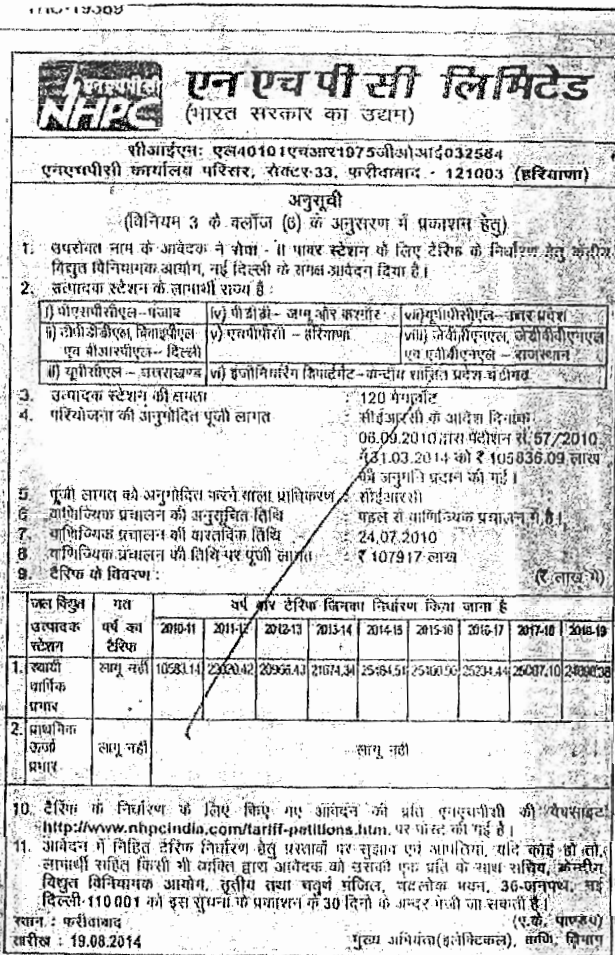 एनएचपीसी
NHPC
एन एच पी सी लिमिटेड
(भारत सरकार का उद्यम)
सीआईएनः एल40101एचआर1975जीओआई032564
एनएचपीसी कार्यालय परिसर, सेक्टर-33, फरीदाबाद - 121003 (हरियाणा)
अनुसूची
(विनियम 3 के क्लॉज (6) के अनुसरण में प्रकाशन हेतु)
1. उपरोक्त नाम के आवेदक ने सेवा - II पावर स्टेशन के लिए टैरिफ के निर्धारण हेतु केंद्रीय
विद्युत विनियामक आयोग, नई दिल्ली के समक्ष आवेदन दिया है।
2. उत्पादक स्टेशन के लाभार्थी राज्य हैं :
i) पीएसपीसीएल-पंजाब iv) पीडीडी - जम्मू और कश्मीर vii) यूपीपीसीएल-उत्तर प्रदेश
ii) टीपीडीडीएल, बिवाईपीएल v) एचपीपीसी - हरियाणा viii) जेवीवीएनएल, जेडीवीवीएनएल
एवं बीआरपीएल- दिल्ली एवं एवीवीएनएल - राजस्थान
iii) यूपीसीएल - उत्तराखण्ड vi) इंजीनियरिंग डिपार्टमेंट-केन्द्रीय शासित प्रदेश-चंडीगढ़
3. उत्पादक स्टेशन की क्षमता : 120 मेगावॉट
4. परियोजना की अनुमोदित पूंजी लागत : सीईआरसी के आदेश दिनांक
06.09.2010 द्वारा पेटीशन सं. 57/2010
में 31.03.2014 को ₹ 105836.09 लाख
की अनुमति प्रदान की गई।
5. पूंजी लागत को अनुमोदित करने वाला प्राधिकरण : सीईआरसी
6. वाणिज्यिक प्रचालन की अनुसूचित तिथि : पहले से वाणिज्यिक प्रचालन में है।
7. वाणिज्यिक प्रचालन की वास्तविक तिथि : 24.07.2010
8. वाणिज्यिक प्रचालन की तिथि पर पूंजी लागत : ₹ 107917 लाख
9. टैरिफ के विवरण : (₹ लाख में)
जल विद्युत गत वर्ष और टैरिफ जिनका निर्धारण किया जाना है
उत्पादक वर्ष का 2010-11 2011-12 2012-13 2013-14 2014-15 2015-16 2016-17 2017-18 2018-19
स्टेशन टैरिफ
1. स्थायी लागू नहीं 10583.14 21674.34 25234.44
वार्षिक
प्रभार
2. प्राथमिक
ऊर्जा लागू नहीं लागू नहीं
प्रभार
10. टैरिफ के निर्धारण के लिए किए गए आवेदन की प्रति एनएचपीसी की वेबसाइट
http://www.nhpcindia.com/tariff-petitions.htm. पर पोस्ट की गई है।
11. आवेदन में निहित टैरिफ निर्धारण हेतु प्रस्तावों पर सुझाव एवं आपत्तियां, यदि कोई हो तो,
लाभार्थी सहित किसी भी व्यक्ति द्वारा आवेदक को उसकी एक प्रति के साथ सचिव, केन्द्रीय
विद्युत विनियामक आयोग, तृतीय तथा चतुर्थ मंजिल, चंद्रलोक भवन, 36-जनपथ, नई
दिल्ली-110 001 को इस सूचना के प्रकाशन के 30 दिनों के अन्दर भेजी जा सकती हैं।
स्थान : फरीदाबाद (ए.के. पाण्डेय)
तारीख : 19.08.2014 मुख्य अभियंता(इलेक्टिकल), वाणि. विभाग